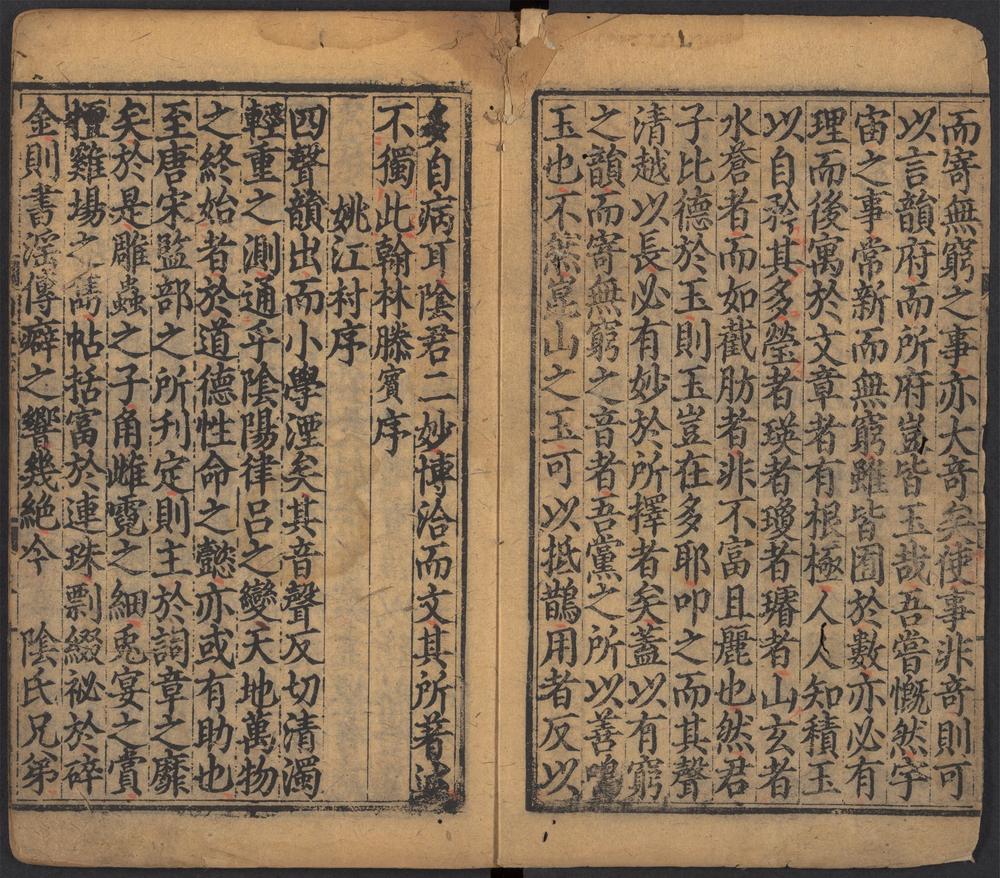 而寄無窮之事亦大奇矣使事非奇則可
以言韻府而所府豈皆玉哉吾嘗慨然宇
宙之事常新而無窮雖皆囿於數亦必有
理而後寓於文章者有根極人人知積玉
以自矜其多瑩者瑛者瓊者璿者山玄者
水蒼者而如截肪者非不富且麗也然君
子比德於玉則玉豈在多耶叩之而其聲
清越以長必有妙於所擇者矣蓋以有窮
之韻而寄無窮之音者吾黨之所以善鳴
玉也不然崑山之玉可以抵鵲用者反以
多自病耳陰君二妙博洽而文其所著
不獨此翰林滕賓序
姚江村序
四聲韻出而小學湮矣其音聲反切清濁
輕重之測通乎陰陽律吕之變天地萬物
之終始者於道德性命之懿亦或有助也
至唐宋監部之所刋定則主於詞章之靡
矣於是雕蟲之子角雌霓之細兎宴之賞
擅雞場之雋帖括富於連珠剽綴祕於碎
金則書淫傳癖之響幾絶今 陰氏兄弟